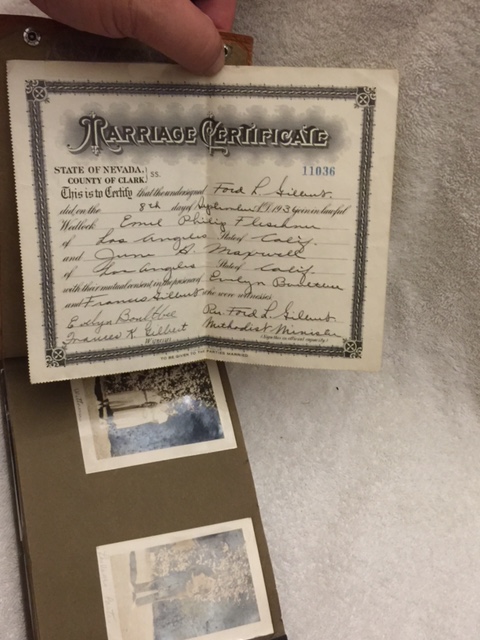 MARRIAGE CERTIFICATE
STATE OF NEVADA,
COUNTY OF CLARK
SS.
11036
This is to Certify that the undersigned Ford L. Gilbert
did, on the 8th day of September A.D. 193 join in lawful
Wedlock Emil Philip Fleischner
of Los Angeles State of Calif.
and June S. Maxwell
of Los Angeles State of Calif.
with their mutual consent, in the presence of Evelyn
and Frances Gilbert who were witnesses.
Evelyn Boultbee
Frances K. Gilbert
Witnesses
Rev. Ford L. Gilbert
Methodist Minister
(Signature in official capacity)
TO BE GIVEN TO THE PARTIES MARRIED